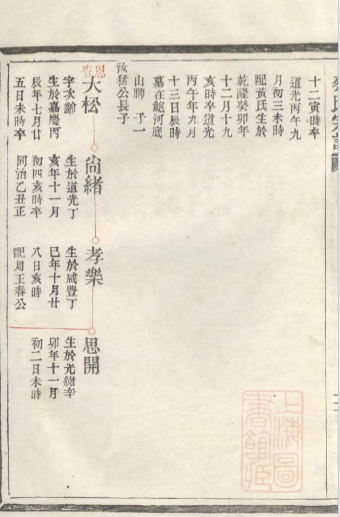 十二寅時卒
道光丙午九
月初三未時
配黃氏生於
乾隆癸卯年
十二月十九
亥時卒道光
丙午年九月
十三日辰時
墓在鮑河底
山脚 子一
汝猛公長子
大松
字次齡
生於嘉慶丙
辰年七月廿
五日未時卒
尚緒
生於道光丁
亥年十一月
初四亥時卒
同治乙丑正
孝樂
生於咸豐丁
巳年十月廿
八日亥時
配周王春公
思開
生於光緒辛
卯年十一月
初二日未時
上海圖
書館藏